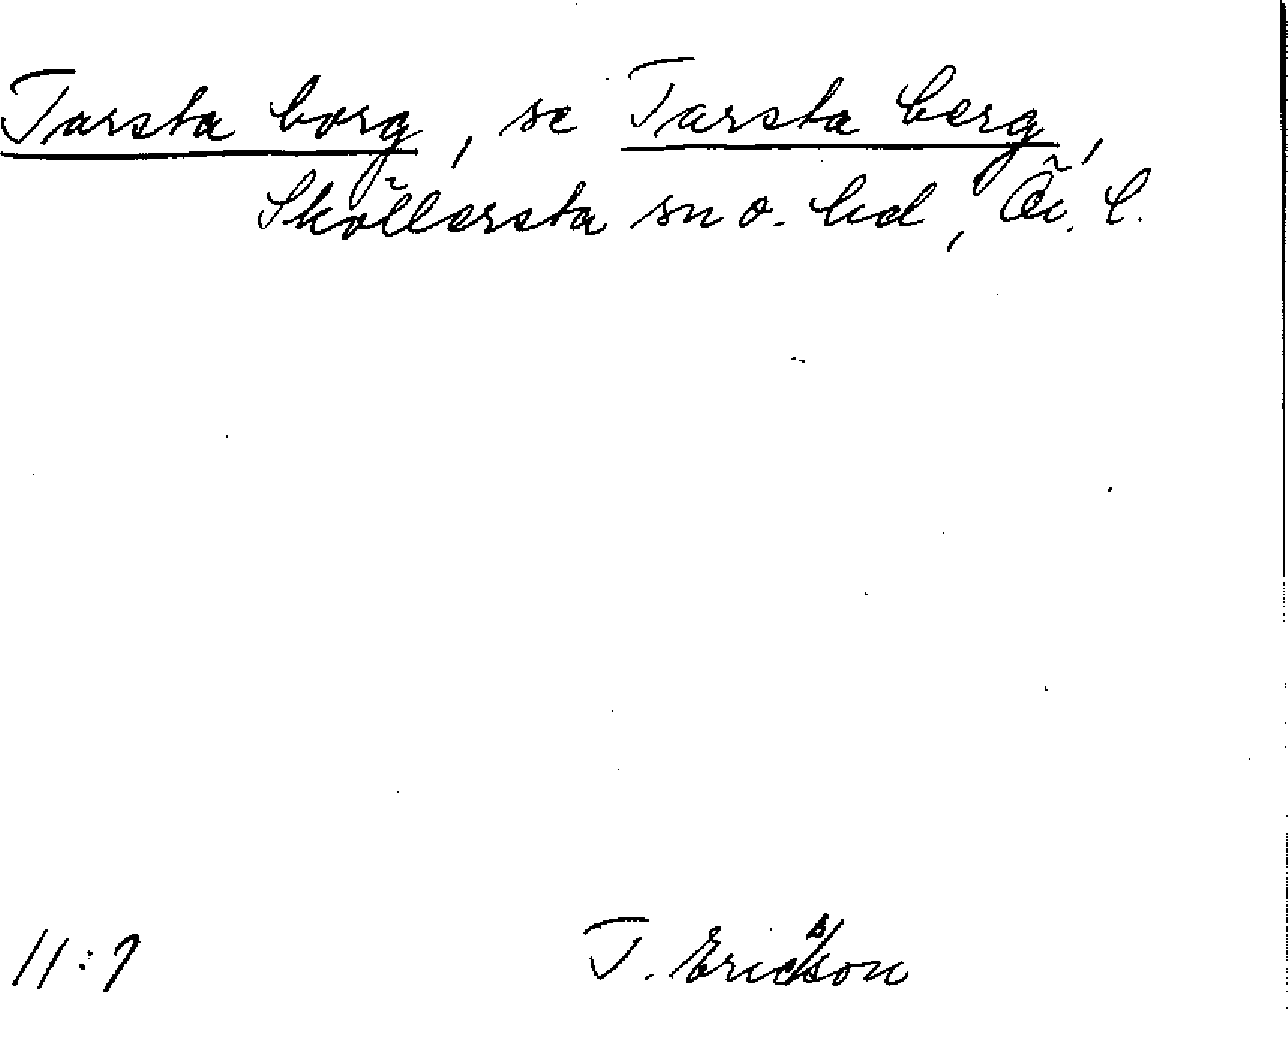 Tarsta borg, se Tarsta berg,
Sköllersta sn o. hd, Ör. l.
11:7 T. Ericsson